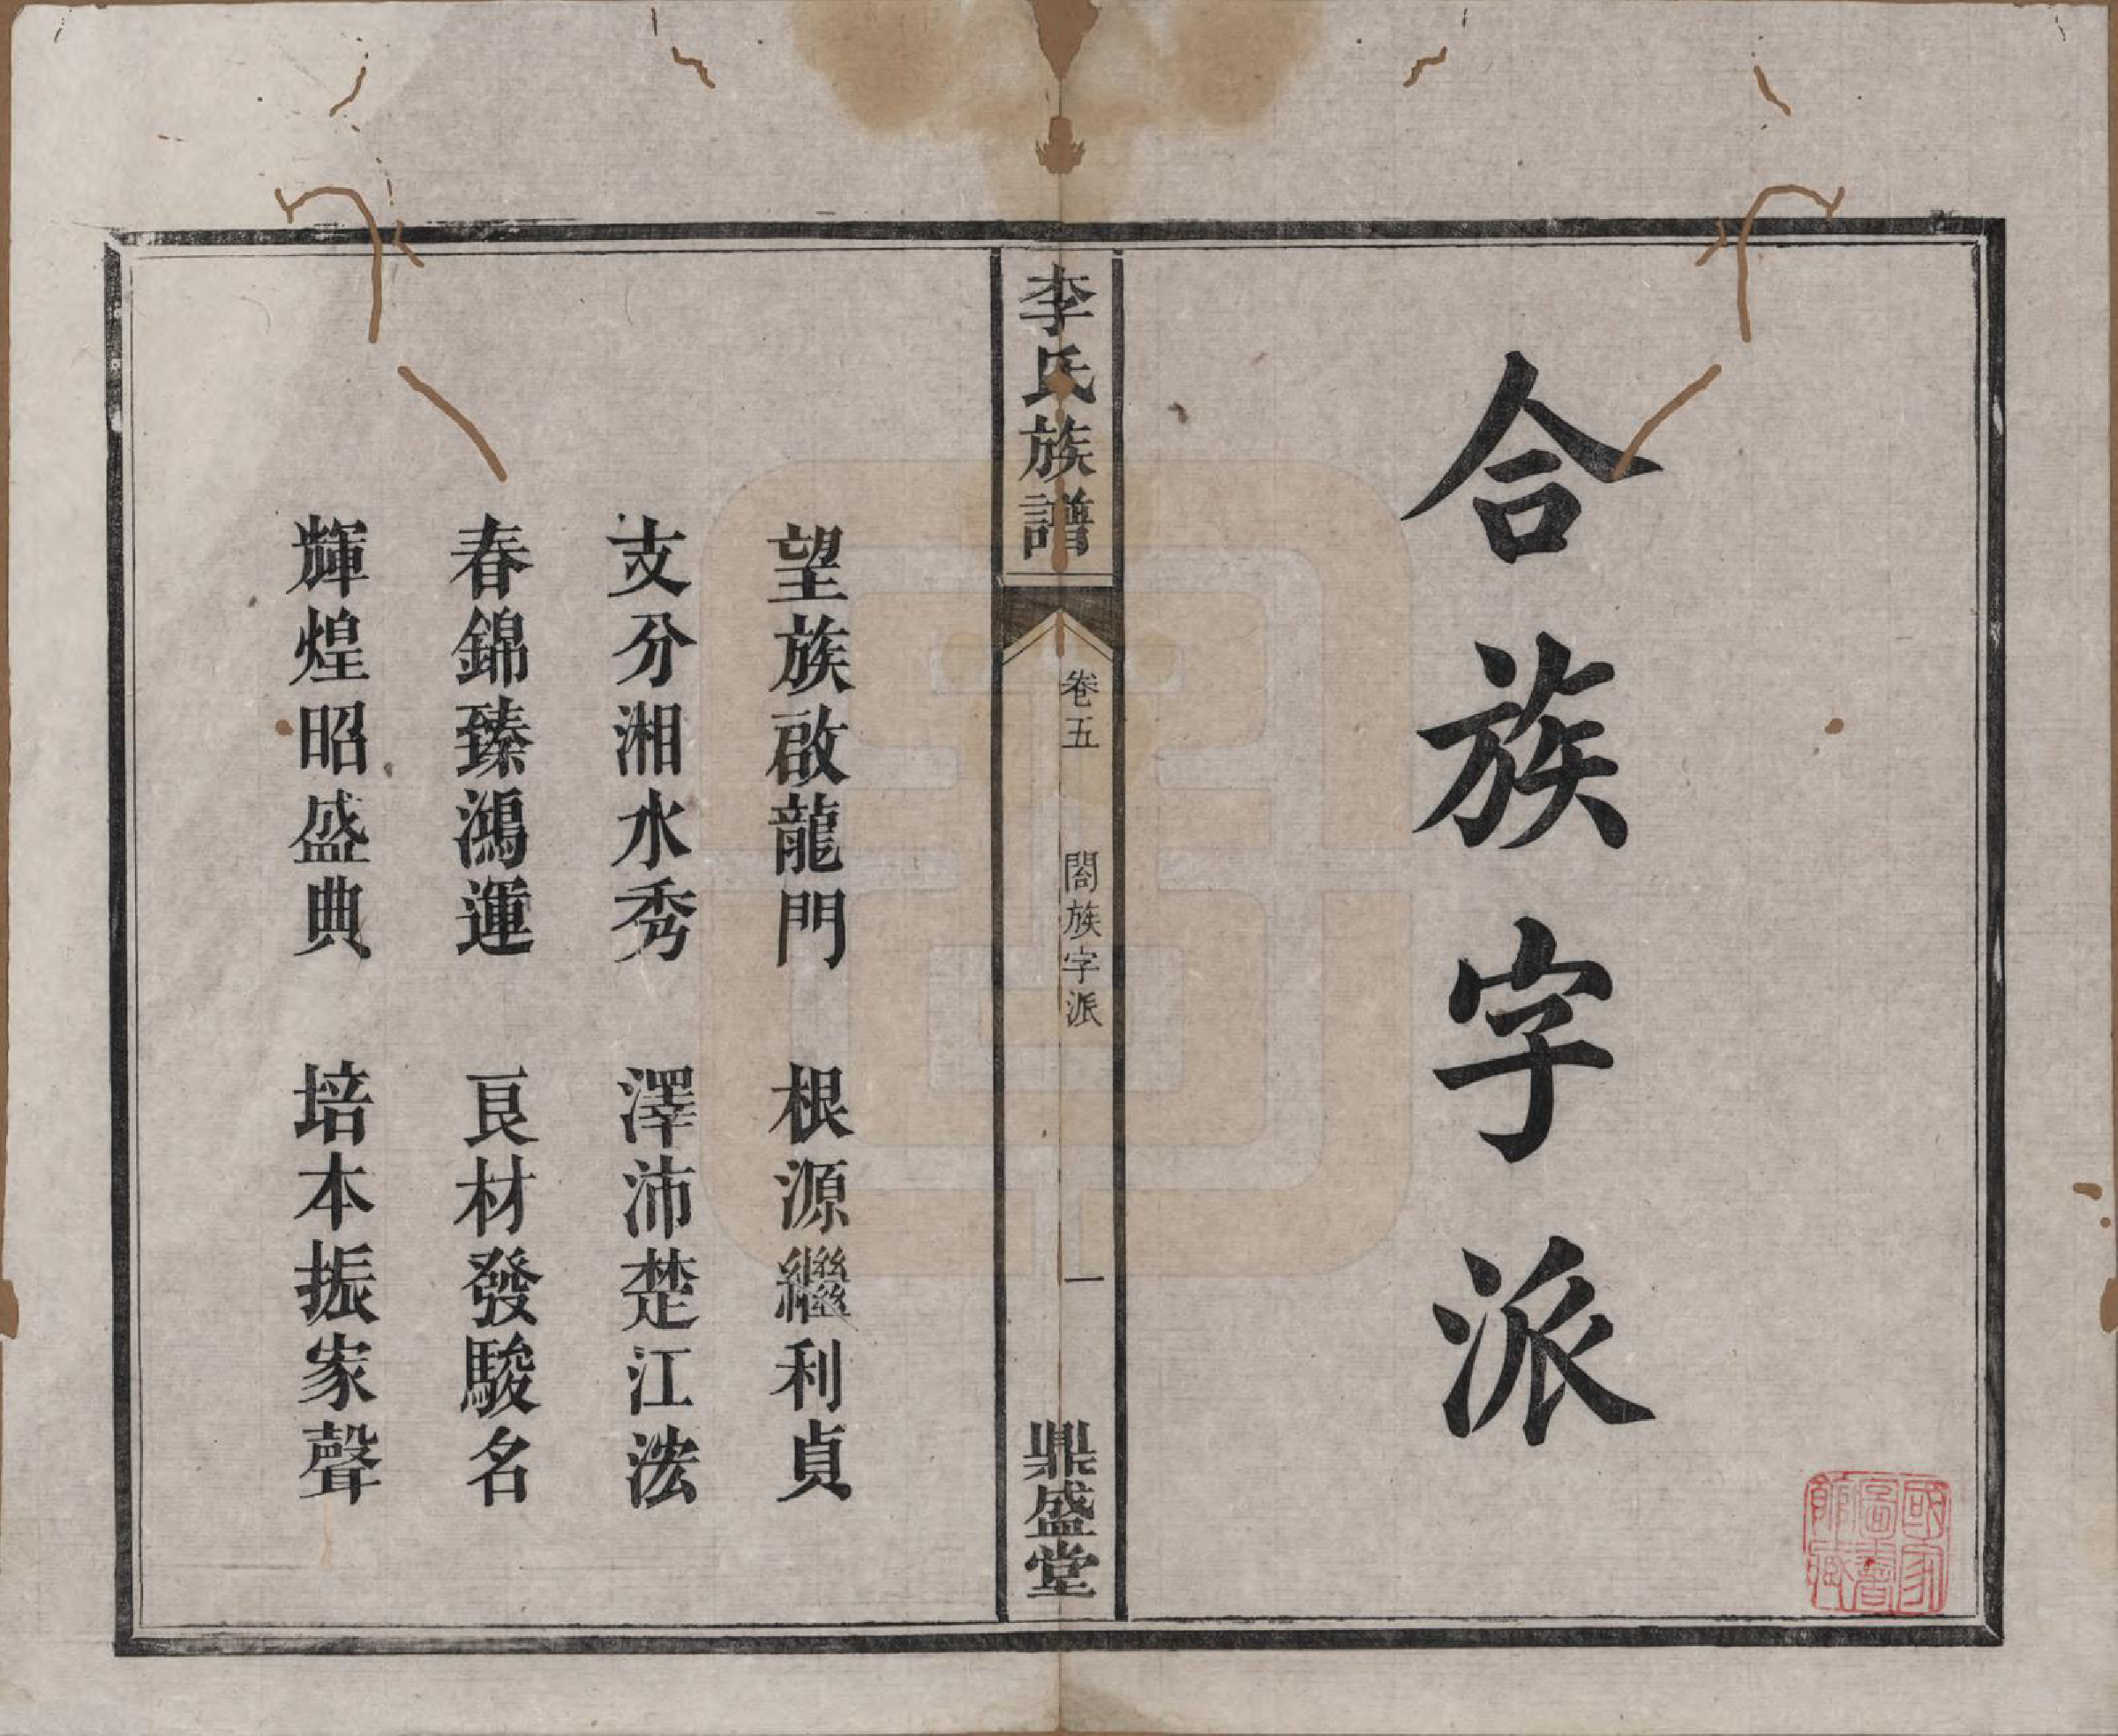 合族字派
國家
圖書
館藏
李氏族譜
卷五
閤族字派
一
鼎盛堂
望族啟龍門 根源繼利貞
支分湘水秀 澤沛楚江浤
春錦臻鴻運 良材發駿名
輝煌昭盛典 培本振家聲